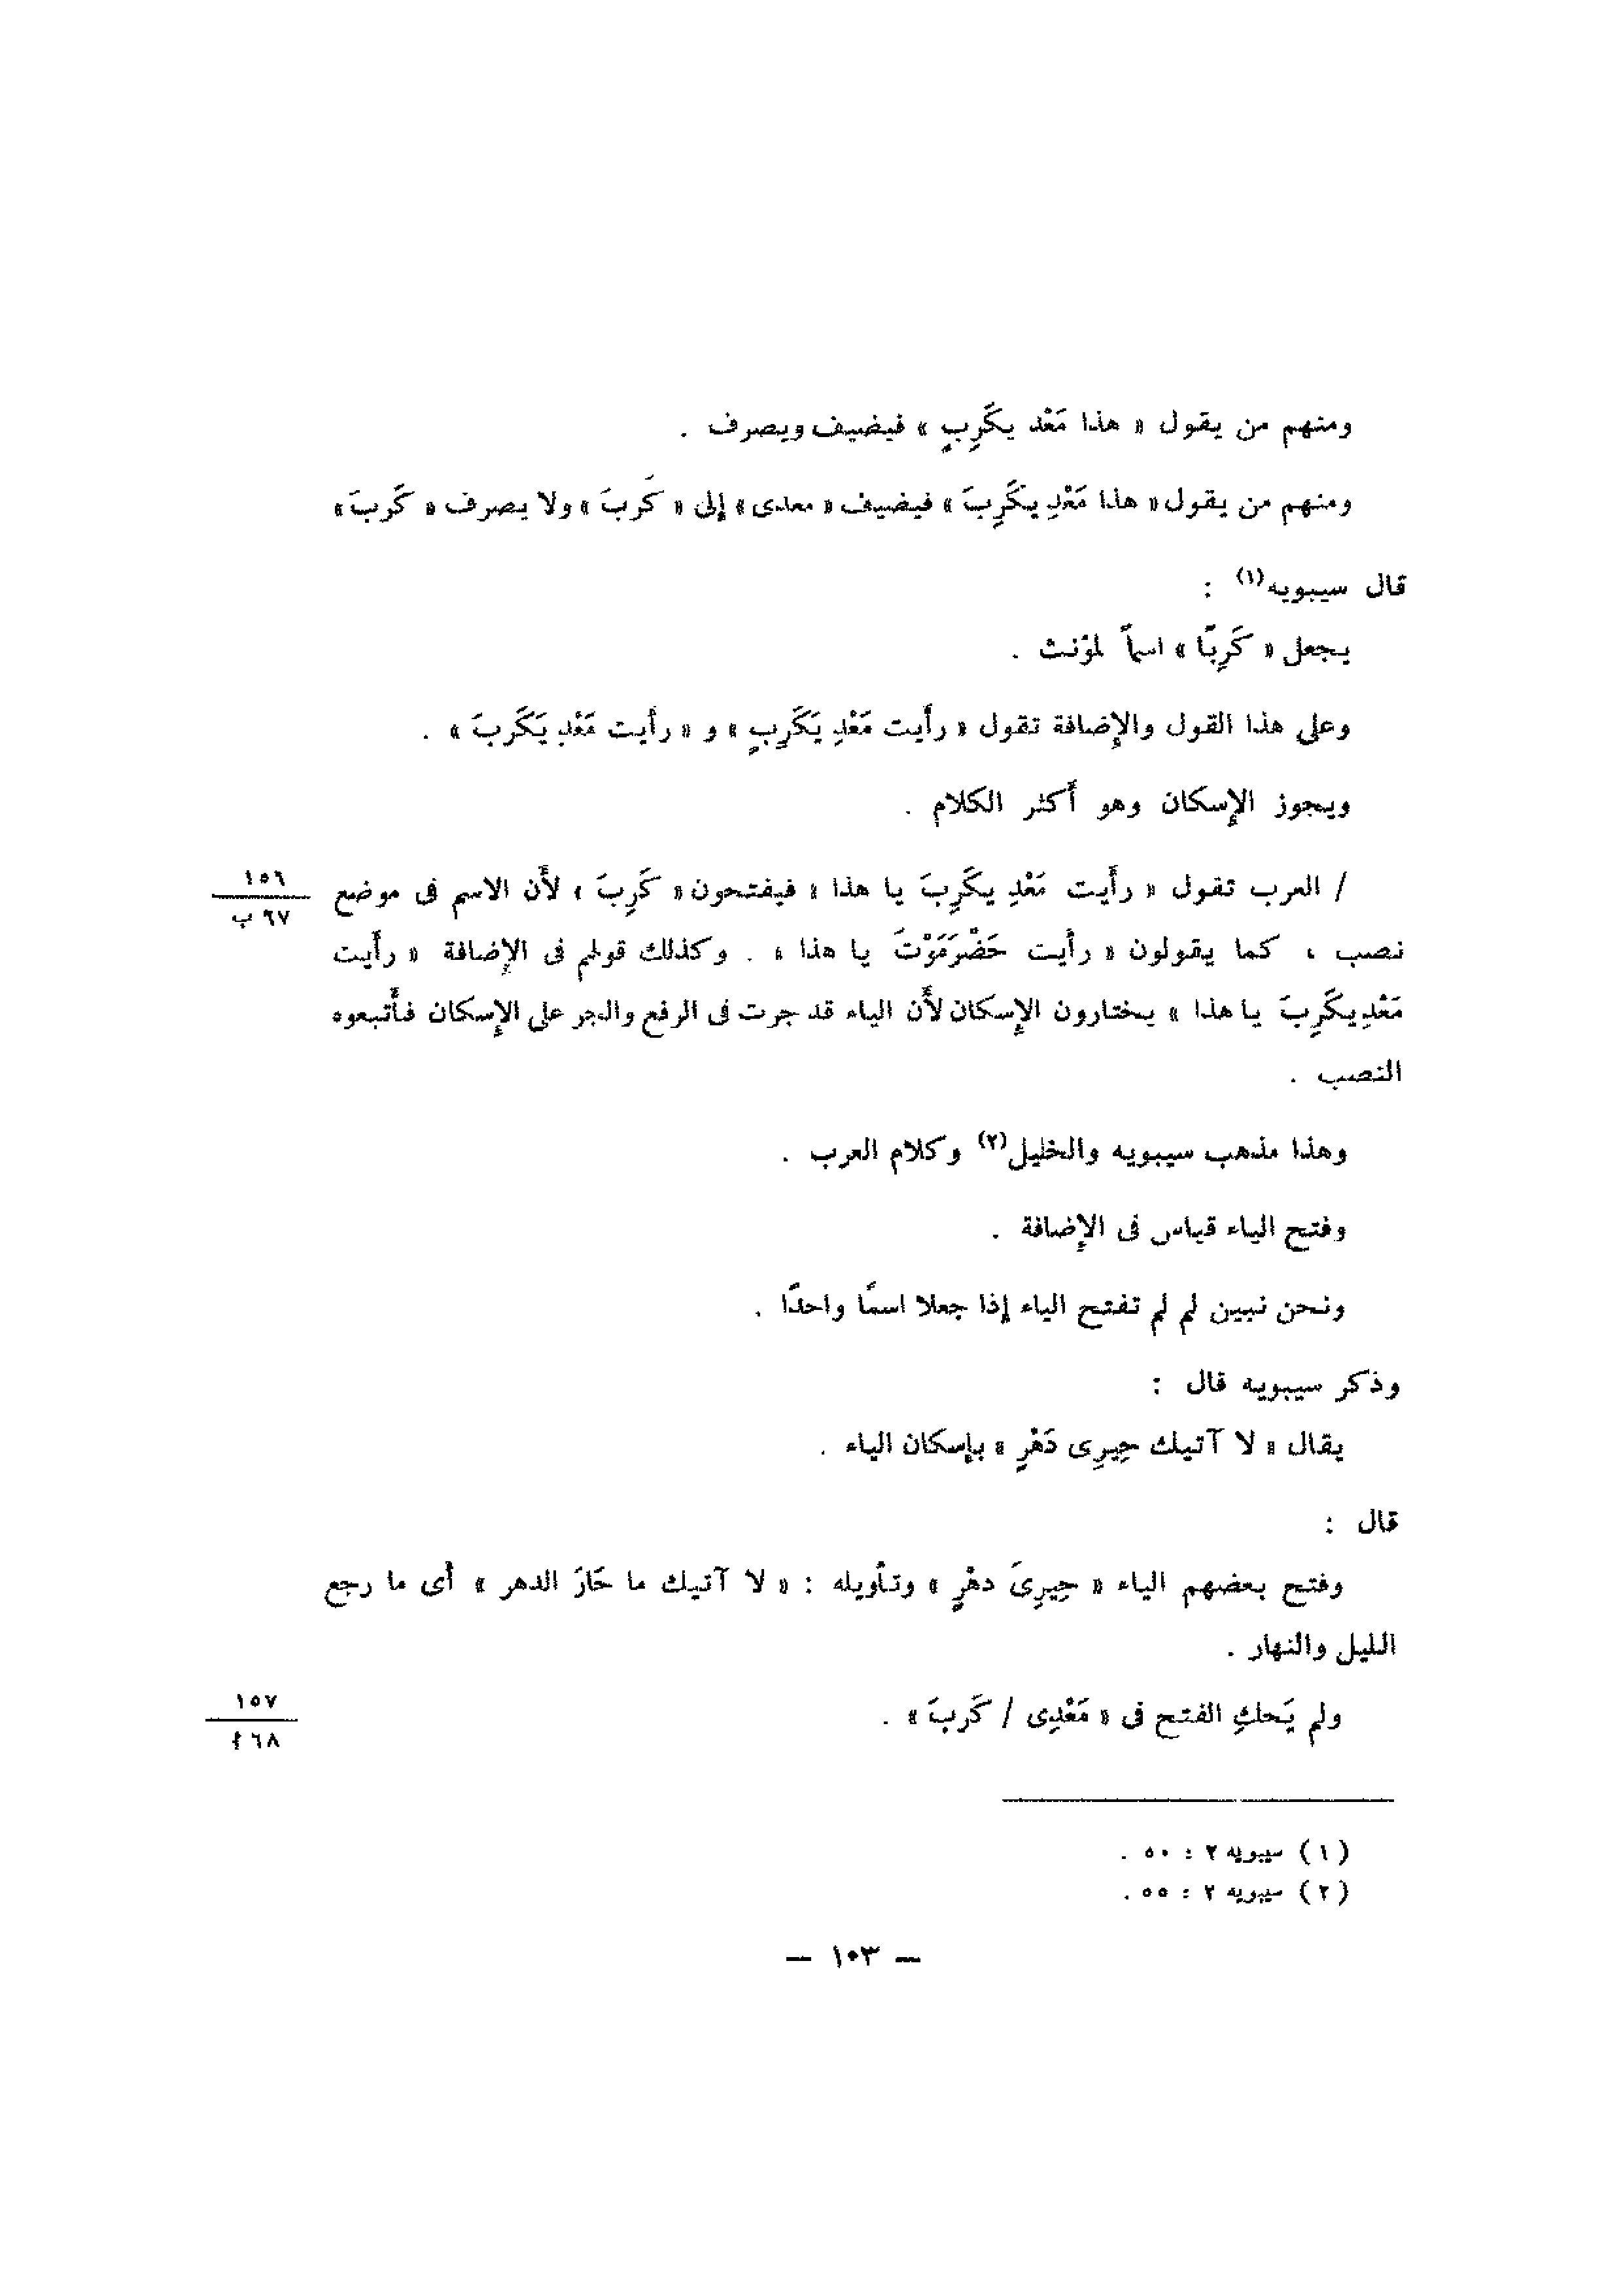 ومنهم من يقول « هذا مَعْد يكَرِبٍ » فيضيف ويصرف .
ومنهم من يقول « هذا مَعْدِ يكَرِبَ » فيضيف « معدى » إلى « كَربَ » ولا يصرف « كَربَ »
قال سيبويه(١) :
يجعل « كَرِبًا » اسماً لمؤنث .
وعلى هذا القول والإضافة تقول « رأيت مَعْدِ يَكَرِبٍ » و « رأيت مَعْدِ يَكَربَ » .
ويجوز الإسكان وهو أكثر الكلام .
/ العرب تقول « رأيت مَعْدِ يكَرِبَ يا هذا » فيفتحون « كَرِبَ » لأن الاسم فى موضع
١٥٦
٦٧ ب
نصب ، كما يقولون « رأيت حَضْرَمَوْتَ يا هذا » . وكذلك قولهم فى الإضافة « رأيت
مَعْدِ يكَرِبَ يا هذا » يختارون الإسكان لأن الياء قد جرت فى الرفع والجر على الإسكان فأتبعوه
النصب .
وهذا مذهب سيبويه والخليل(٢) وكلام العرب .
وفتح الياء قياس فى الإضافة .
ونحن نبين لم لم تفتح الياء إذا جعلا اسمًا واحدًا .
وذكر سيبويه قال :
يقال « لا آتيك حِيرِى دَهْرٍ » بإسكان الياء .
قال :
وفتح بعضهم الياء « حِيرِىَ دهْرٍ » وتأويله : « لا آتيك ما حَارَ الدهر » أى ما رجع
الليل والنهار .
ولم يَحكِ الفتح فى « مَعْدِى / كَربَ » .
١٥٧
٦٨ أ
( ١ ) سيبويه ٢ : ٥٠ .
( ٢ ) سيبويه ٢ : ٥٥ .
— ١٠٣ —